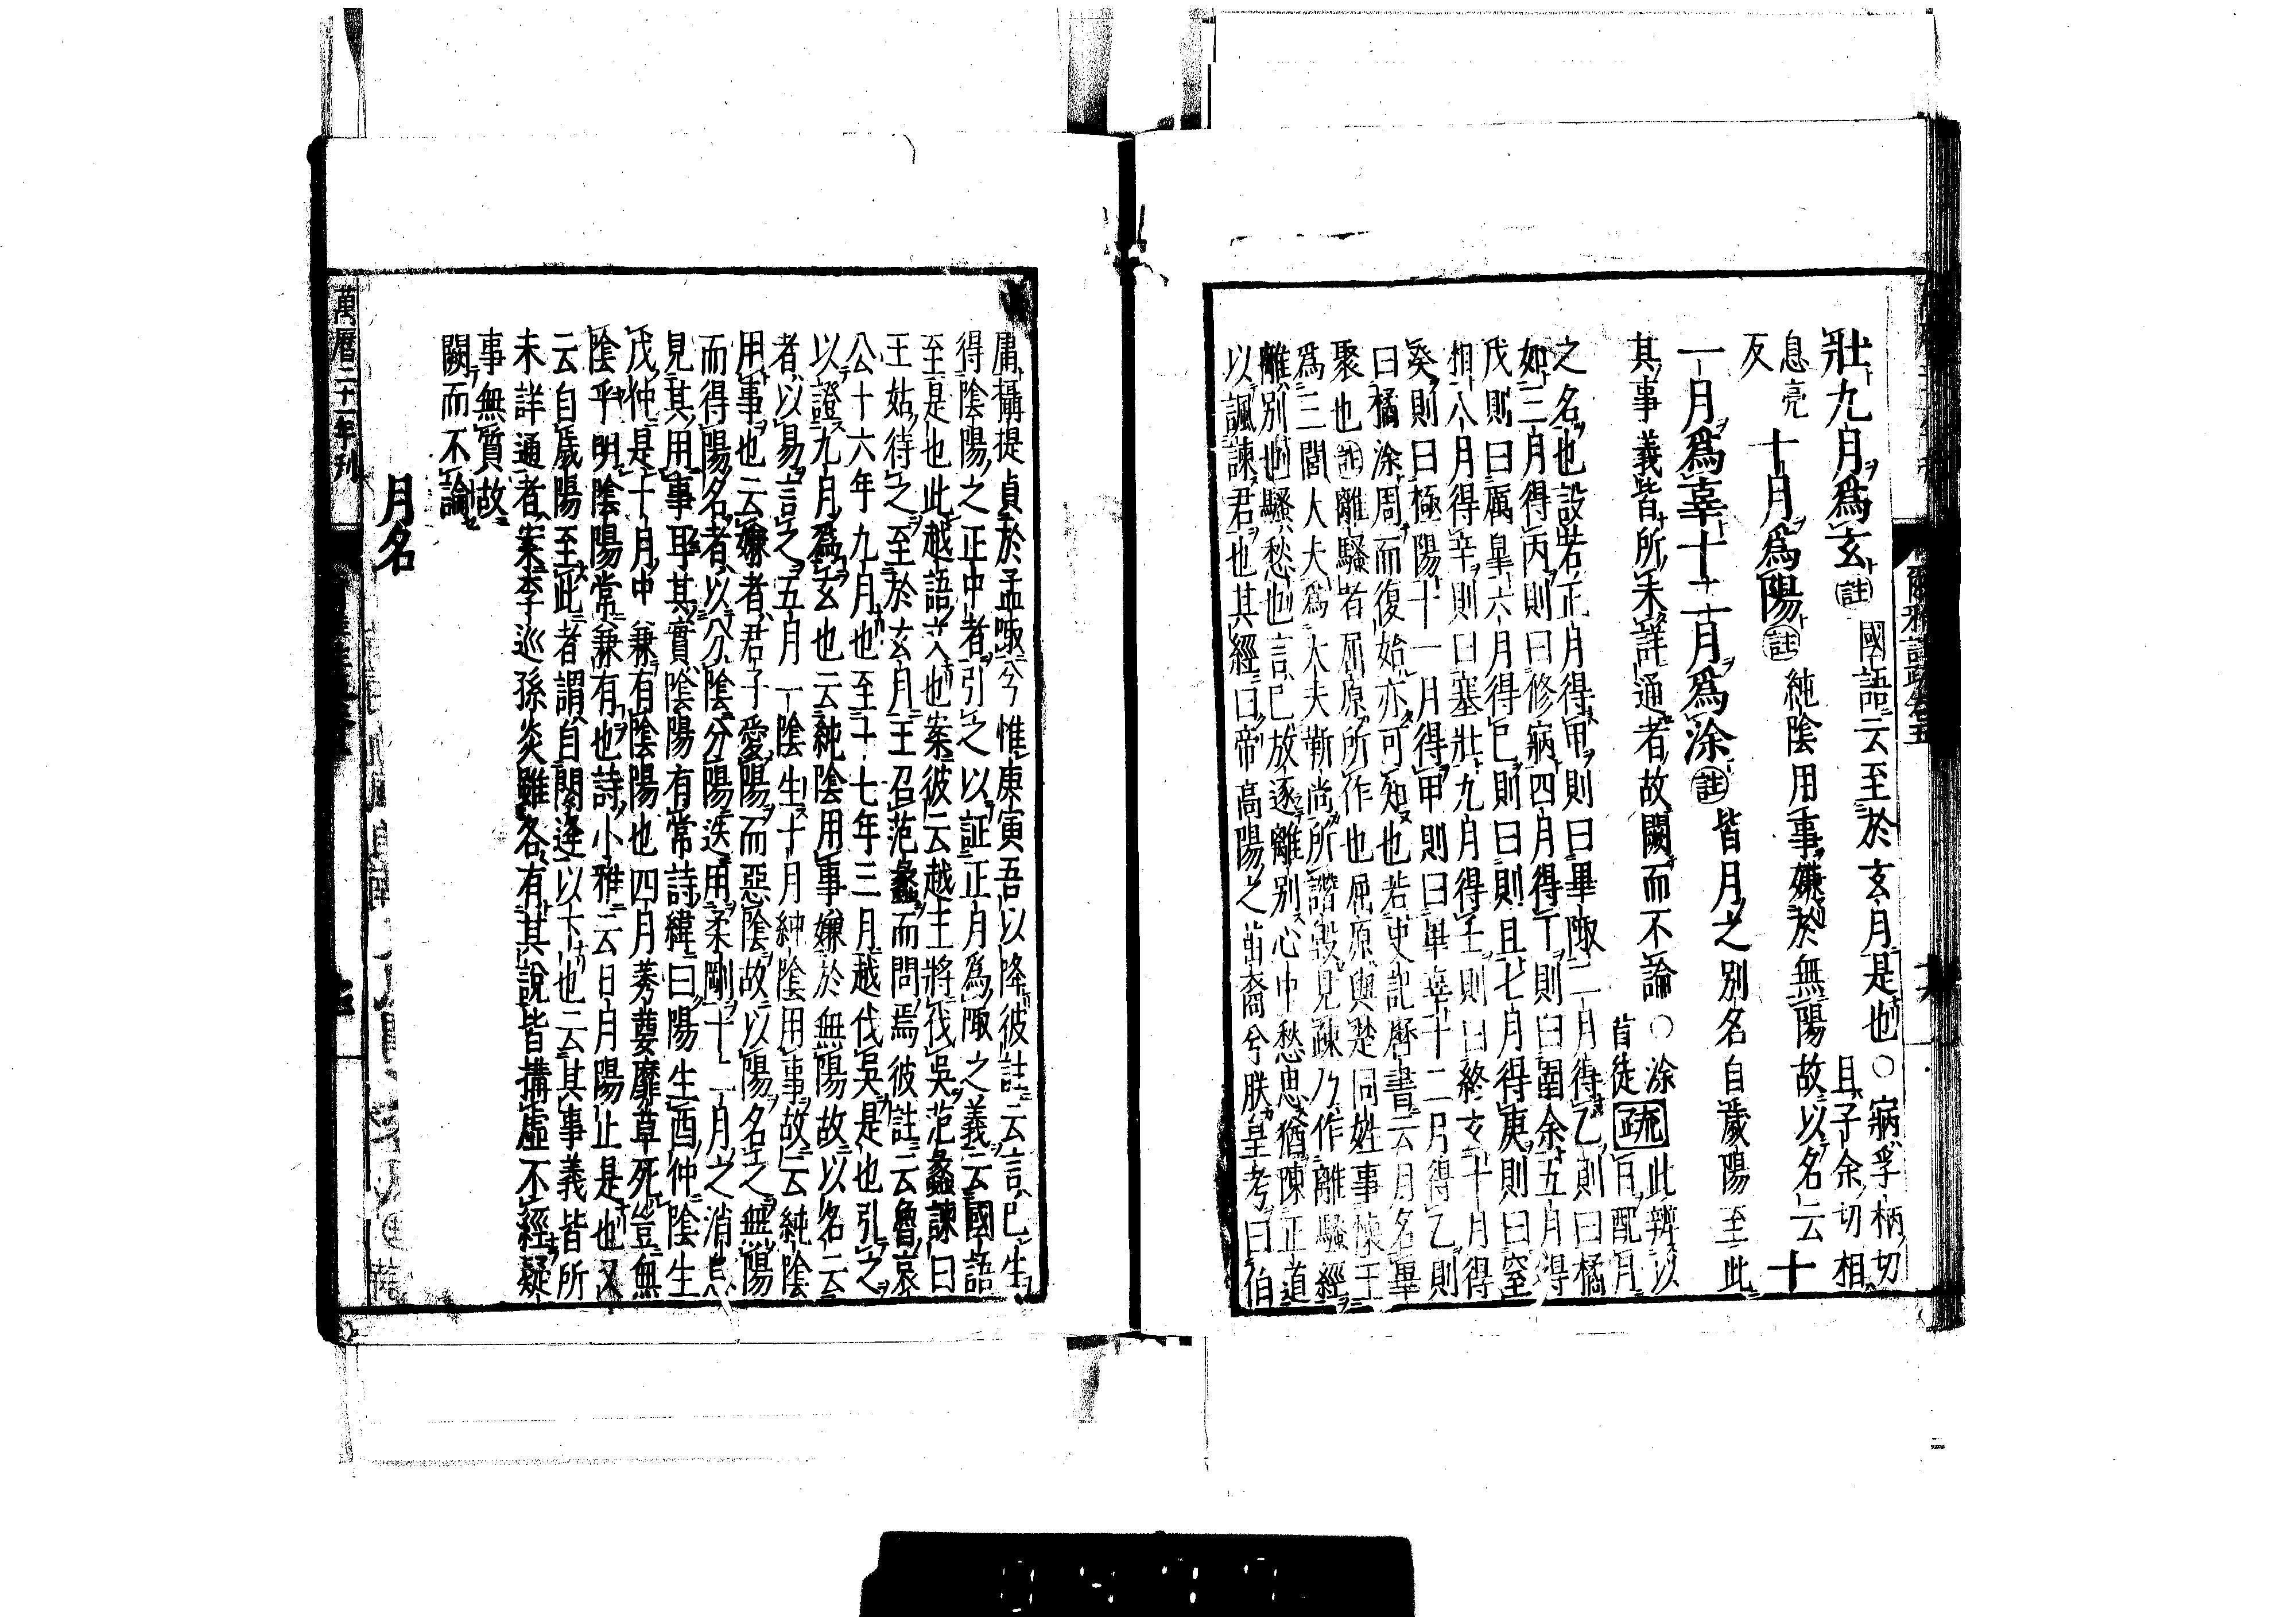 爾雅註疏卷五
壯九月爲玄㊟國語云至於玄月是也○㾕孚柄切
且子余切相
息亮
反
十月爲陽㊟純陰用事嫌於無陽故以名云十
一月爲辜十二月爲涂㊟皆月之別名自歲陽至此
其事義皆所未詳通者故闕而不論○涂
音徒疏此辨以日配月
之名也設若正月得甲則曰畢陬二月得乙則曰橘
如三月得丙則曰修㾕四月得丁則曰圉余五月得
戊則曰厲皐六月得巳則曰則且七月得庚則曰窒
相八月得辛則曰塞壯九月得壬則曰終玄十月得
癸則曰極陽十一月得甲則曰畢辜十二月得乙則
曰橘涂周而復始亦可知也若史記曆書云月名畢
聚也㊟離騷者屈原所作也屈原與楚同姓事懷王
爲三閭大夫爲大夫靳尚所譖毀見疎乃作離騷經
離別也騷愁也言已放逐離別心中愁思猶陳正道
以諷諫君也其經曰帝高陽之苗裔兮朕皇考曰伯
庸攝提貞於孟陬兮惟庚寅吾以降彼註云言已生
得陰陽之正中者引之以証正月爲陬之義云國語
至是也此越語文也案彼云越王將伐吳范蠡諫曰
王姑待之至於玄月王召范蠡而問焉彼註云魯哀
公十六年九月也至十七年三月越伐吳是也引之
以證九月爲玄也云純陰用事嫌於無陽故以名云
者以易言之五月一陰生十月純陰用事故云純陰
用事也云嫌者君子愛陽而惡陰故以陽名之無陽
而得陽名者以分陰分陽迭用柔剛十二月之消息
見其用事耳其實陰陽有常詩緯曰陽生酉仲陰生
戊仲是十月中兼有陰陽也四月莠葽靡草死豈無
陰乎明陰陽常兼有也詩小雅云日月陽止是也又
云自歲陽至此者謂自閼逢以下也云其事義皆所
未詳通者案李巡孫炎雖各有其說皆搆虛不經疑
事無質故
闕而不論
月名
萬曆二十一年刋